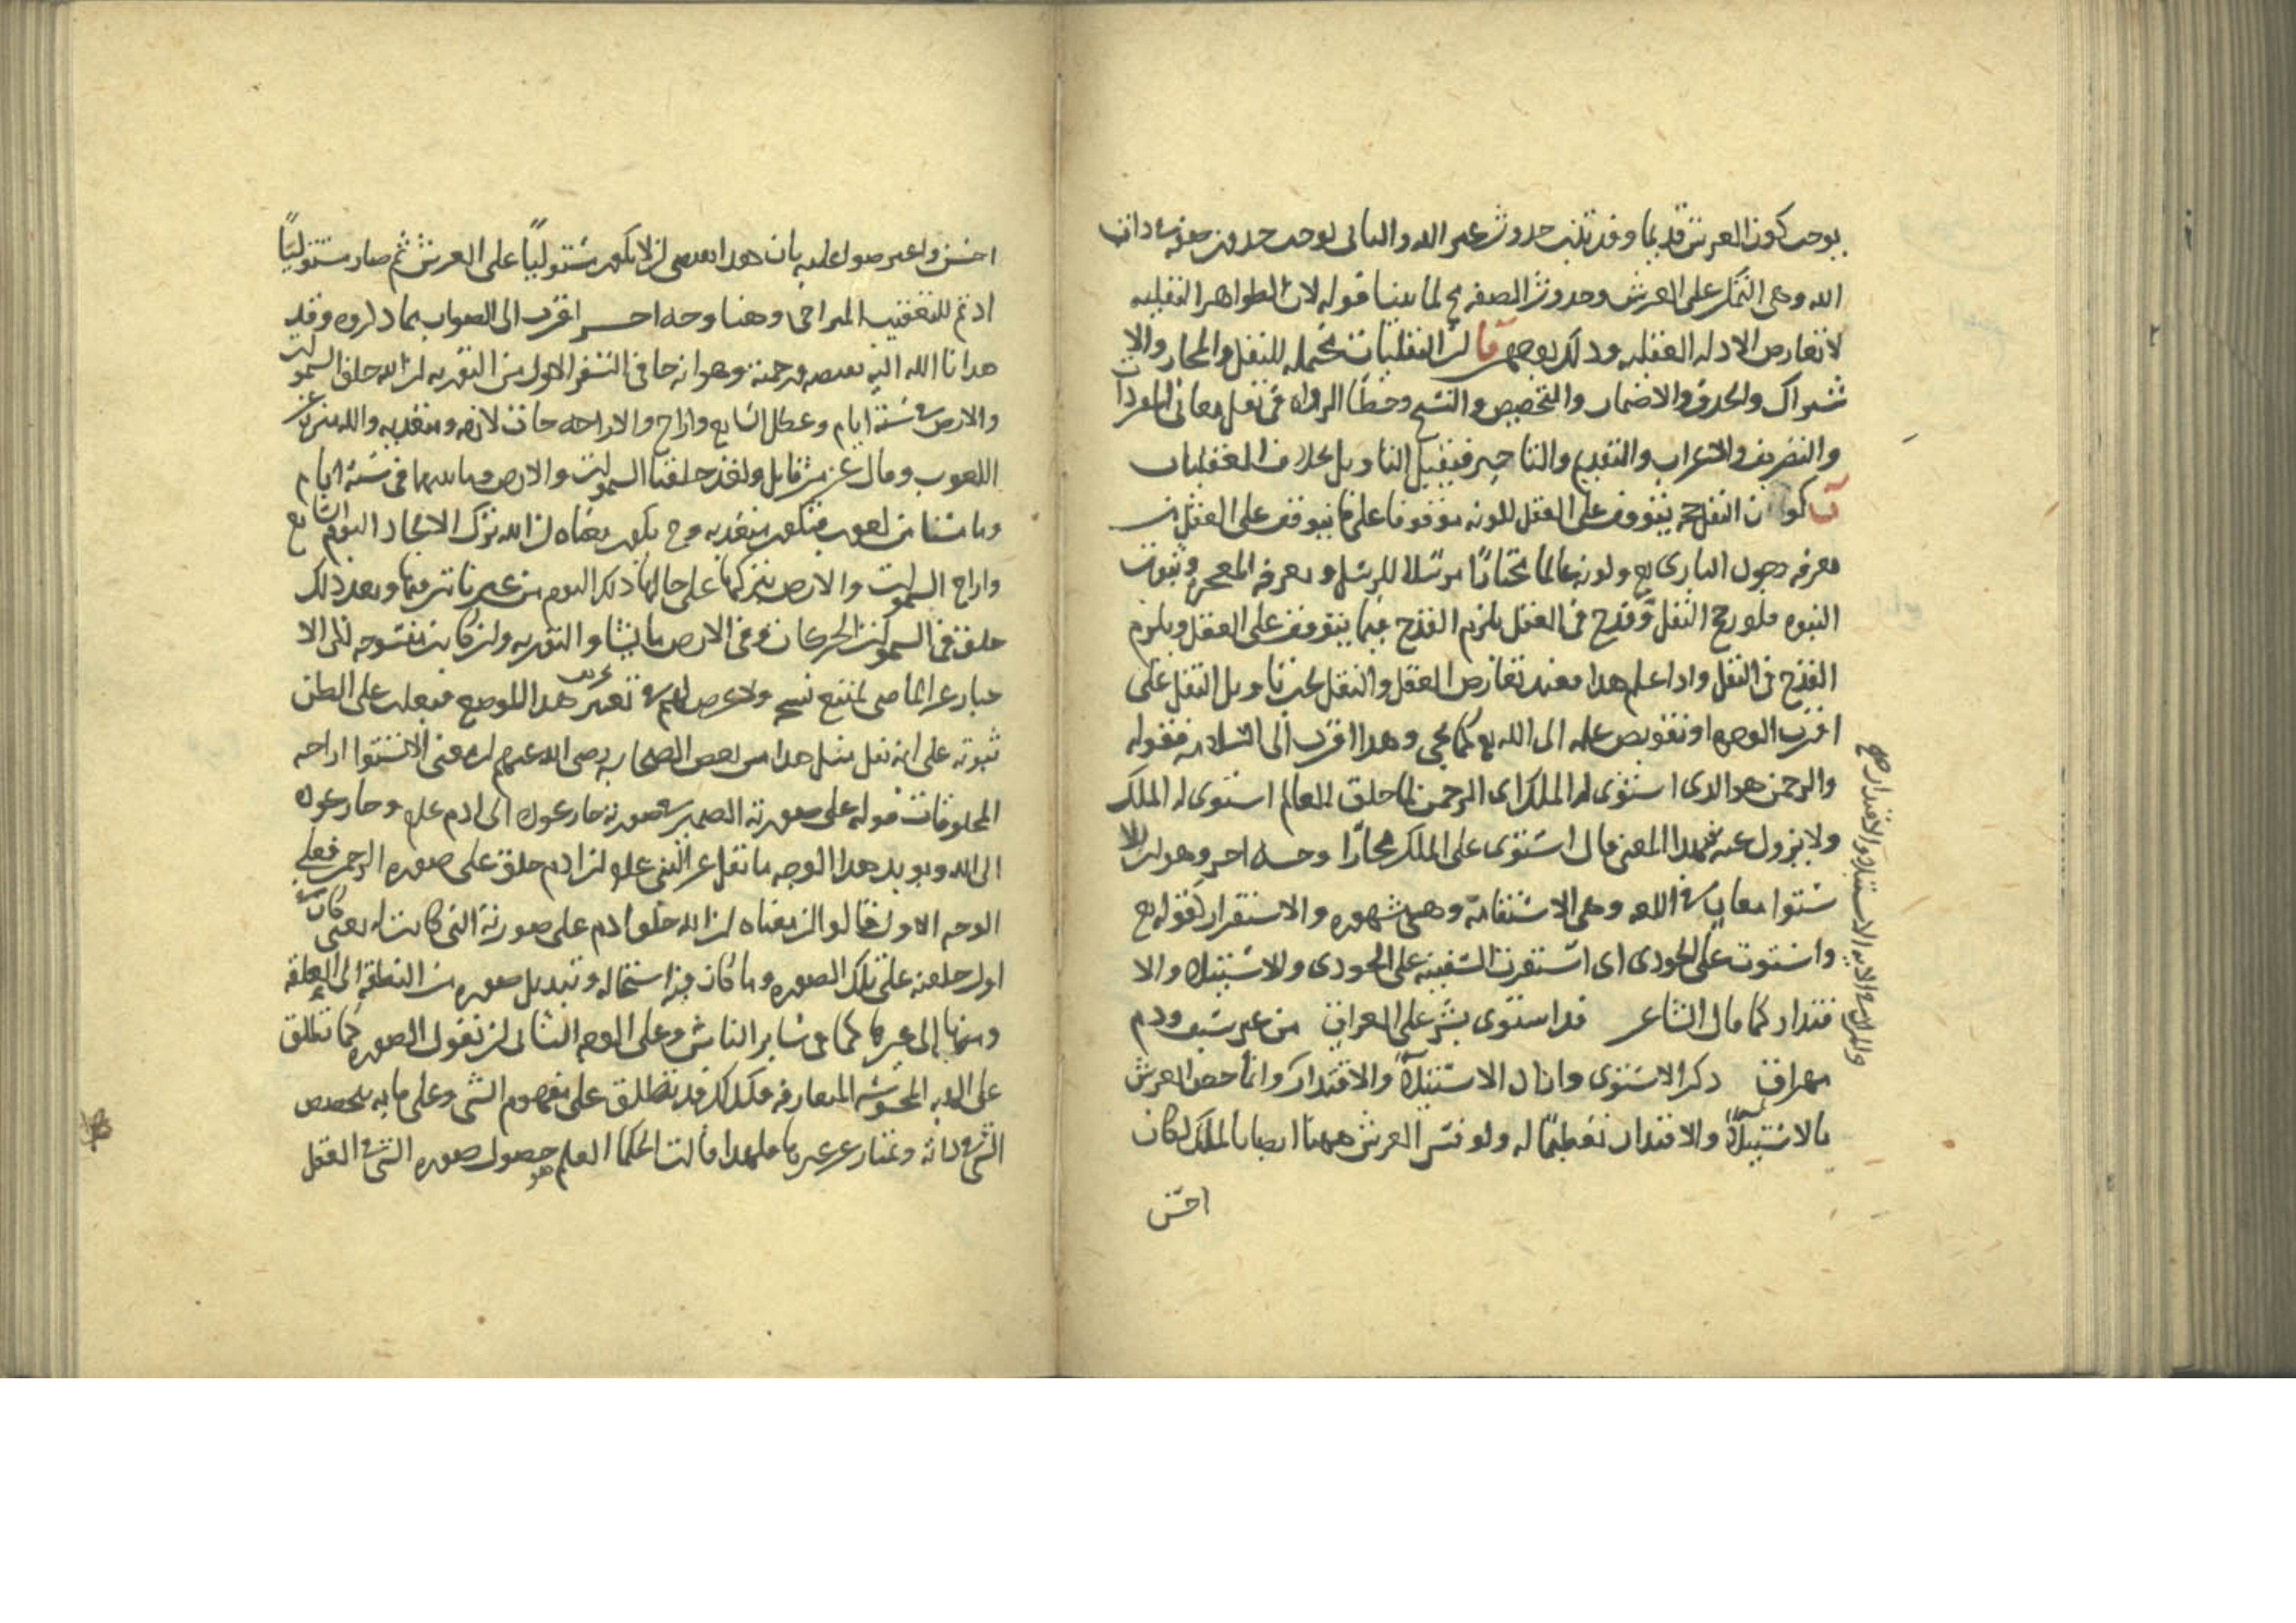 يوجب كون العرش قديما وقد ثبت حدوث غير الله والثاني يوجب حدوث صفة في ذات
الله وهي التمكن على العرش وحدوث الصفة مح لما بينا قوله لان الظواهر النقليه
لا تعارض الادله العقليه وذلك بوجهين فا لان النقليات محتمله للنقل والمجاز والا
شتراك والحذف والاضمار والتخصيص والنسخ وخطا الرواه في نقل معاني المفردات
والتصريف والاعراب والتقديم والتاخير فيقبل التاويل بخلاف العقليات
ب كون النقل حجة يتوقف على العقل لكونه موقوفا على ما يتوقف على العقل من
معرفه وجود الباري تع وكونه عالما مختارا مرسلا للرسل ومعرفه المعجزه وثبوت
النبوه فلو رجح النقل وقدح في العقل يلزم القدح فيما يتوقف على العقل ويلزم
القدح في النقل واذا علم هذا فعند تعارض العقل والنقل يجب تاويل النقل على
اقرب الوجوه او تفويض علمه الى الله تع كما يجي وهذا اقرب الى السلامه فقوله
والرحمن هو الذي استوى له الملك اي الرحمن لما خلق العالم استوى له الملك
ولا يزول عنه فلهذا المعنى قال استوى على الملك مجازا وجه اخر وهو ان للا
ستوا معان في اللغه وهي الاستقامة وهي مشهوره والاستقرار كقوله تع
واستوت على الجودي اي استقرت السفينه على الجودي والاستيلاء والا
قتدار كما قال الشاعر قد استوى بشر على العراق من غير سيف ودم
مهراق ذكر الاستوى واراد الاستيلاء والاقتدار وانما خص العرش
بالاستيلاء والاقتدار تعظيما له ولو فسر العرش ههنا ايضا بالملك لكان
احسن
والمراد في الايه الاستيلاء والاقتدار صح
احسن واعترضوا عليه بان هذا يقتضي ان لا يكون مستوليا على العرش ثم صار مستوليا
اذ ثم للتعقيب المتراخي وهنا وجه اخر اقرب الى الصواب مما ذكروه وقد
هدانا الله اليه بفضله ورحمته وهو انه جا في السفر الاول من التوريه ان الله خلق السموات
والارض في ستة ايام وعطل السابع واراح والاراحه جات لازمه ومتعديه والله منزه عن
اللغوب وقال عز من قايل ولقد خلقنا السموات والارض وما بينهما في ستة ايام
وما مسنا من لغوب فتكون متعديه وح يكون معناه ان الله ترك الايجاد اليوم السابع
واراح السموات والارض بتركها على حالها ذلك اليوم من غير تاثير فيها وبعد ذلك
خلق في السموات الحركات وفي الارض ما يشا والتوريه وان كانت منسوخه لكن الا
خبار عن الماضي يمتنع نسخه ولا غرض لهم في تغيير هذا الموضع فيغلب على الظن
ثبوته على انه نقل مثل هذا من بعض الصحابه رضي الله عنهم ان معنى الاستوا اراحه
المخلوقات قوله على صورته الضمير في صورته جاز عوده الى ادم علم وجاز عوده
الى الله ويويد هذا الوجه ما نقل عن النبي علم ان ادم خلق على صوره الرحمن فعلى
الوجه الاول قالوا ان معناه ان الله خلق ادم على صورته التي كانت له يعني كان
اول خلقته على تلك الصوره وما كان فيه استحاله وتبديل صوره من النطفه الى العلقه
ومنها الى غيرها كما في ساير الناس وعلى الوجه الثاني ان نقول الصوره كما تطلق
على الهيه المحسوسه المتعارفه فكذلك قد تطلق على مفهوم الشي وعلى ما به يتخصص
الشي في ذاته ويمتاز عن غيره فلهذا قالت الحكما العلم هو حصول صوره الشي في العقل